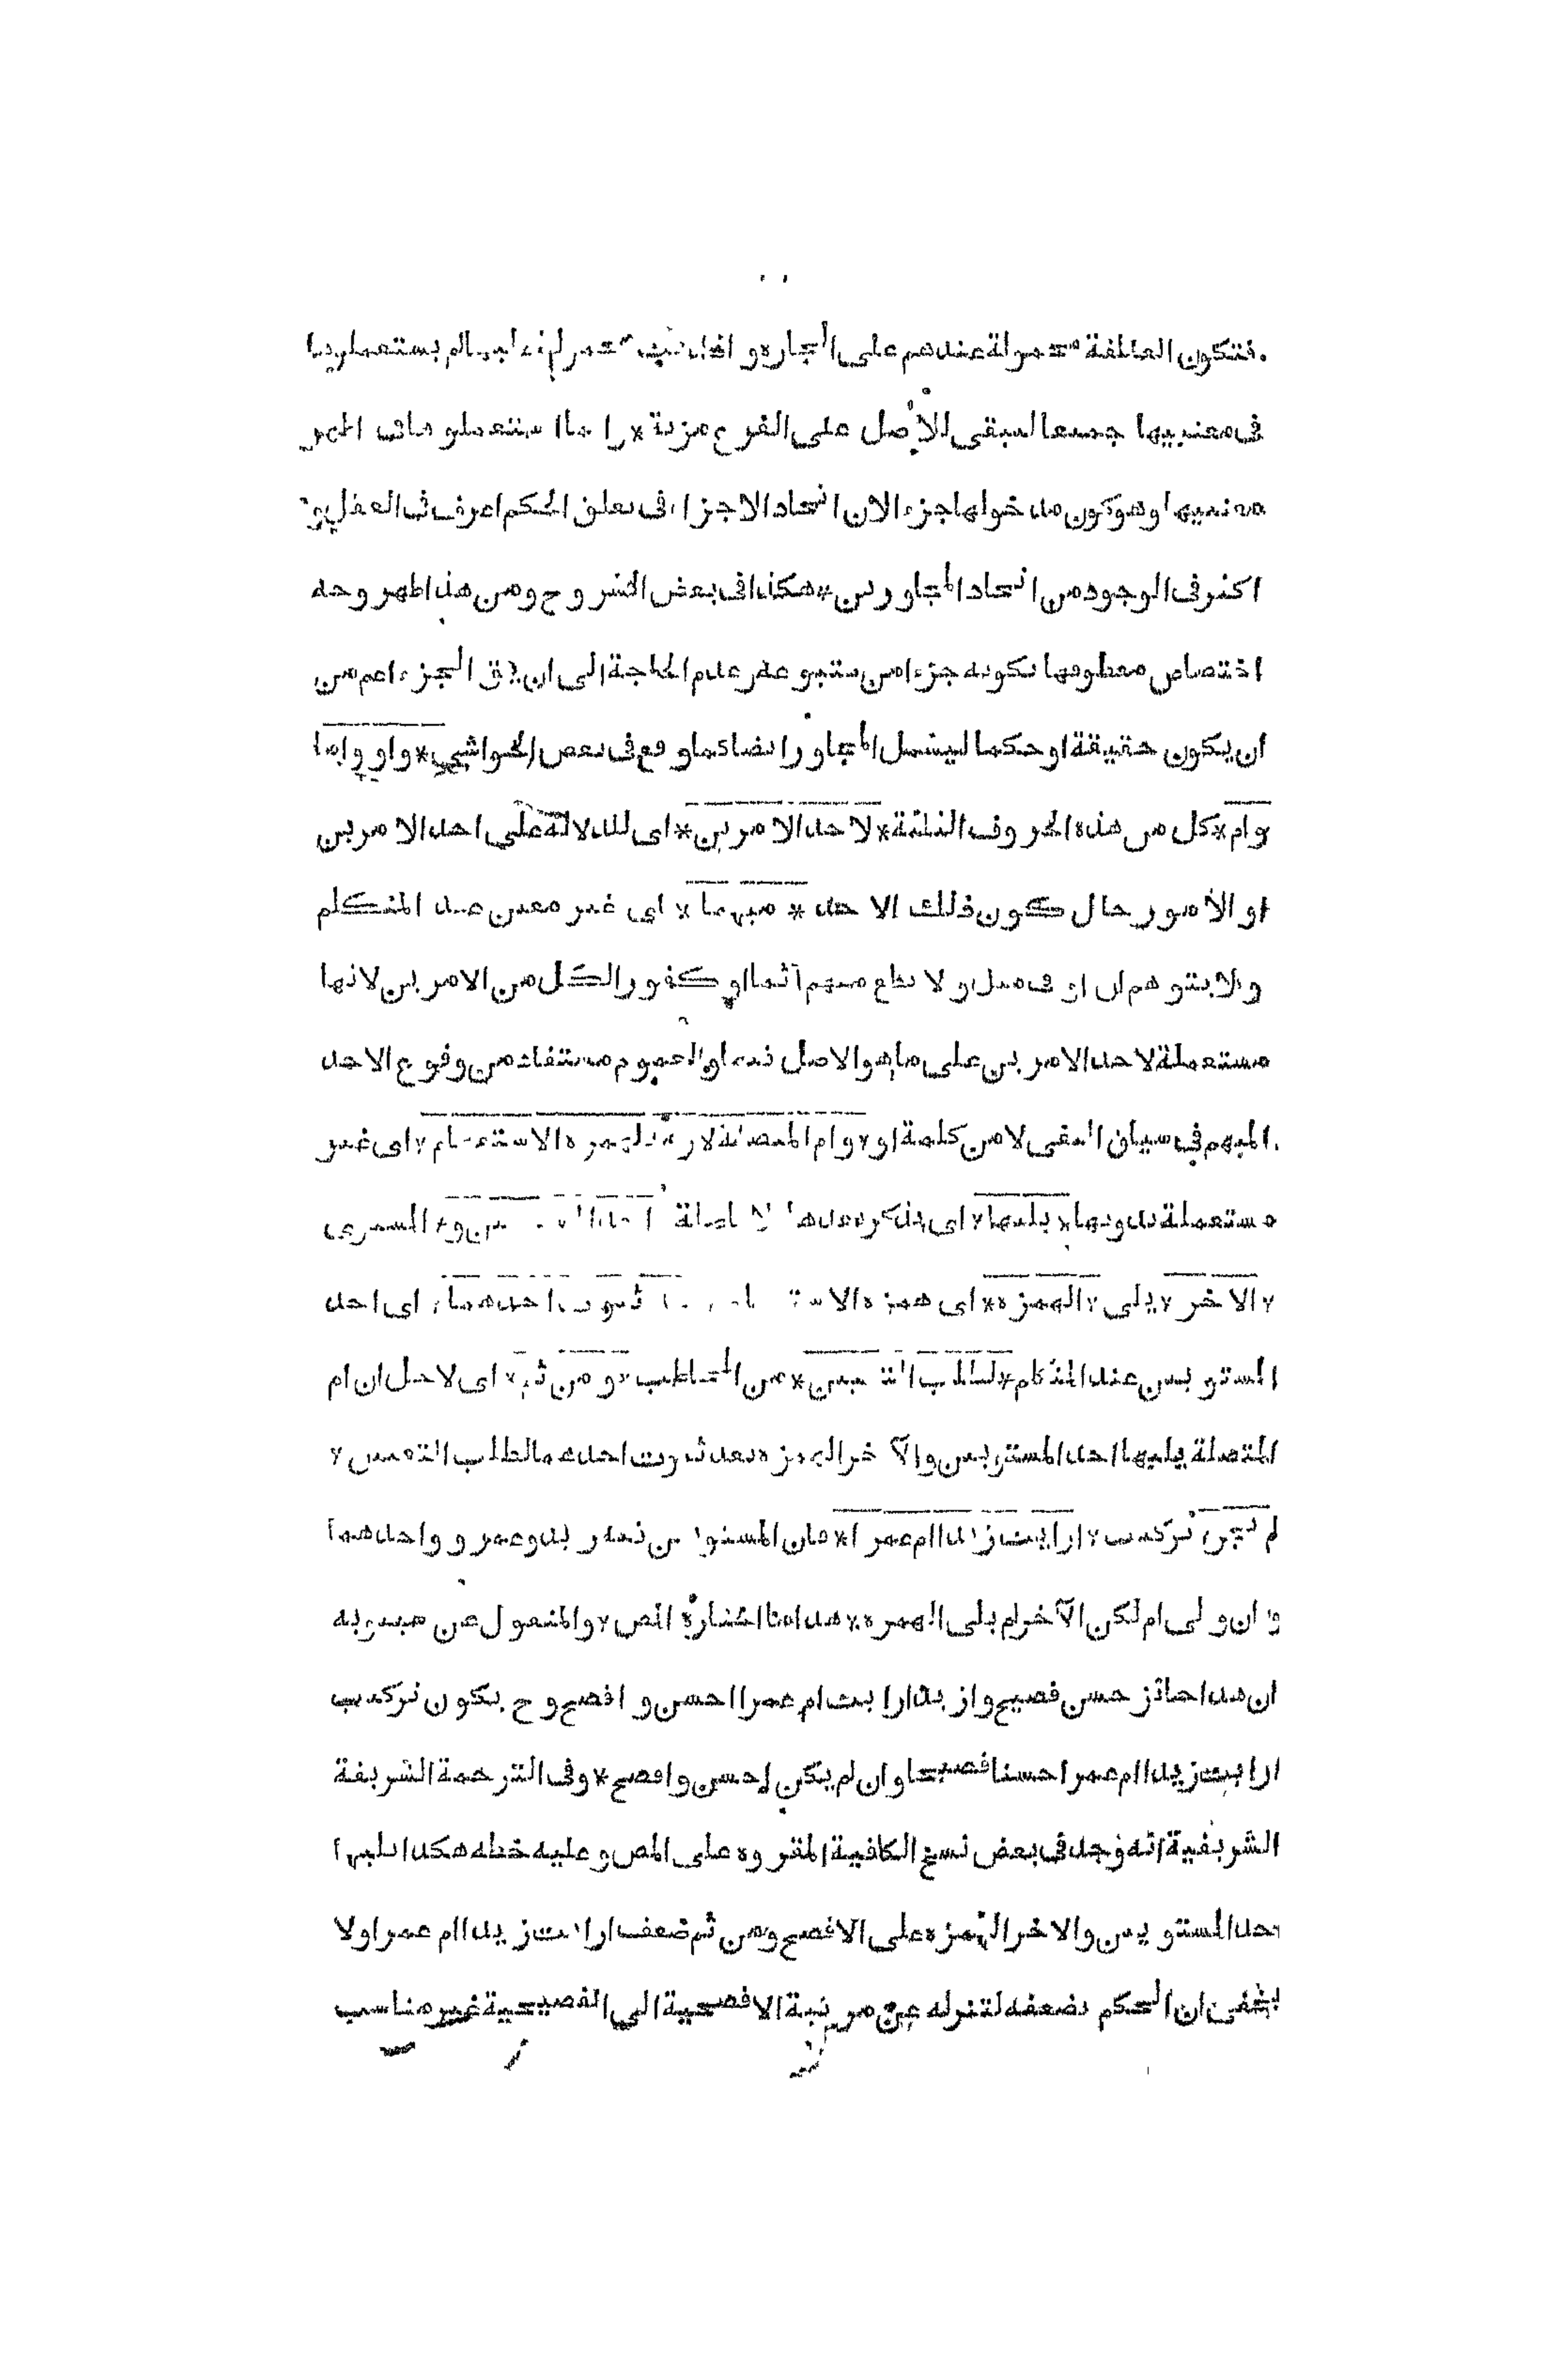 فتكون العاطفة محمولة عندهم على الجارة و لم يستعملوها
فى معنييها جميعا ليبقى للأصل على الفرع مزية * استعملوها فى
معنييها وهو كون مدخولها جزء لان اتحاد الاجزاء فى تعلق الحكم اعرف فى العقل
اكثر فى الوجود من اتحاد المجاورين * هكذا فى بعض الشروح ومن هذا ظهر وجه
اختصاص معطوفها بكونه جزء من متبوعه عدم الحاجة الى ان الجزء اعم من
ان يكون حقيقة او حكما ليشمل المجاور ايضا كما وقع فى بعض الحواشى * واو واما
وام * كل من هذه الحروف الثلثة * لاحد الامرين * اى للدلالة على احد الامرين
او الأمور حال كون ذلك الاحد * مبهما * اى غير معين عند المتكلم
ولا يتوهم ان او فى مثل ولا تطع منهم آثما او كفورا لكل من الامرين لانها
مستعملة لاحد الامرين على ما هو الاصل فيه او العموم مستفاد من وقوع الاحد
المبهم فى سياق النفى لا من كلمة او * وام المتصلة لازمة لهمزة الاستفهام * اى غير
مستعملة بدونها * يليها * اى يذكر بعدها بلا فاصلة احد المستويين
* الاخر * يلى * الهمزة * اى همزة الاستفهام ثبوت احدهما * اى احد
المستويين عند المتكلم * لطلب التعيين * من المخاطب * ومن ثم * اى لاجل ان ام
المتصلة يليها احد المستويين والآخر الهمزة بعد ثبوت احدهما لطلب التعيين *
لم يجز * تركيب * ارايت زيدا ام عمرا * فان المستويين فيه زيد وعمرو واحدهما
وان ولى ام لكن الآخر لم يلى الهمزة * هذا ما اختاره المص * والمنقول عن سيبويه
ان هذا جائز حسن فصيح وازيدا رايت ام عمرا احسن وافصح وح يكون تركيب
ارايت زيدا ام عمرا حسنا فصيحا وان لم يكن احسن وافصح * وفى الترجمة الشريفة
الشريفية انه وجد فى بعض نسخ الكافية المقروة على المص وعليه خطه هكذا يليها
احد المستويين والاخر الهمزة على الافصح ومن ثم ضعف ارايت زيدا ام عمرا ولا
يخفى ان الحكم بضعفه لتنزله عن مرتبة الافصحية الى الفصيحية غير مناسب